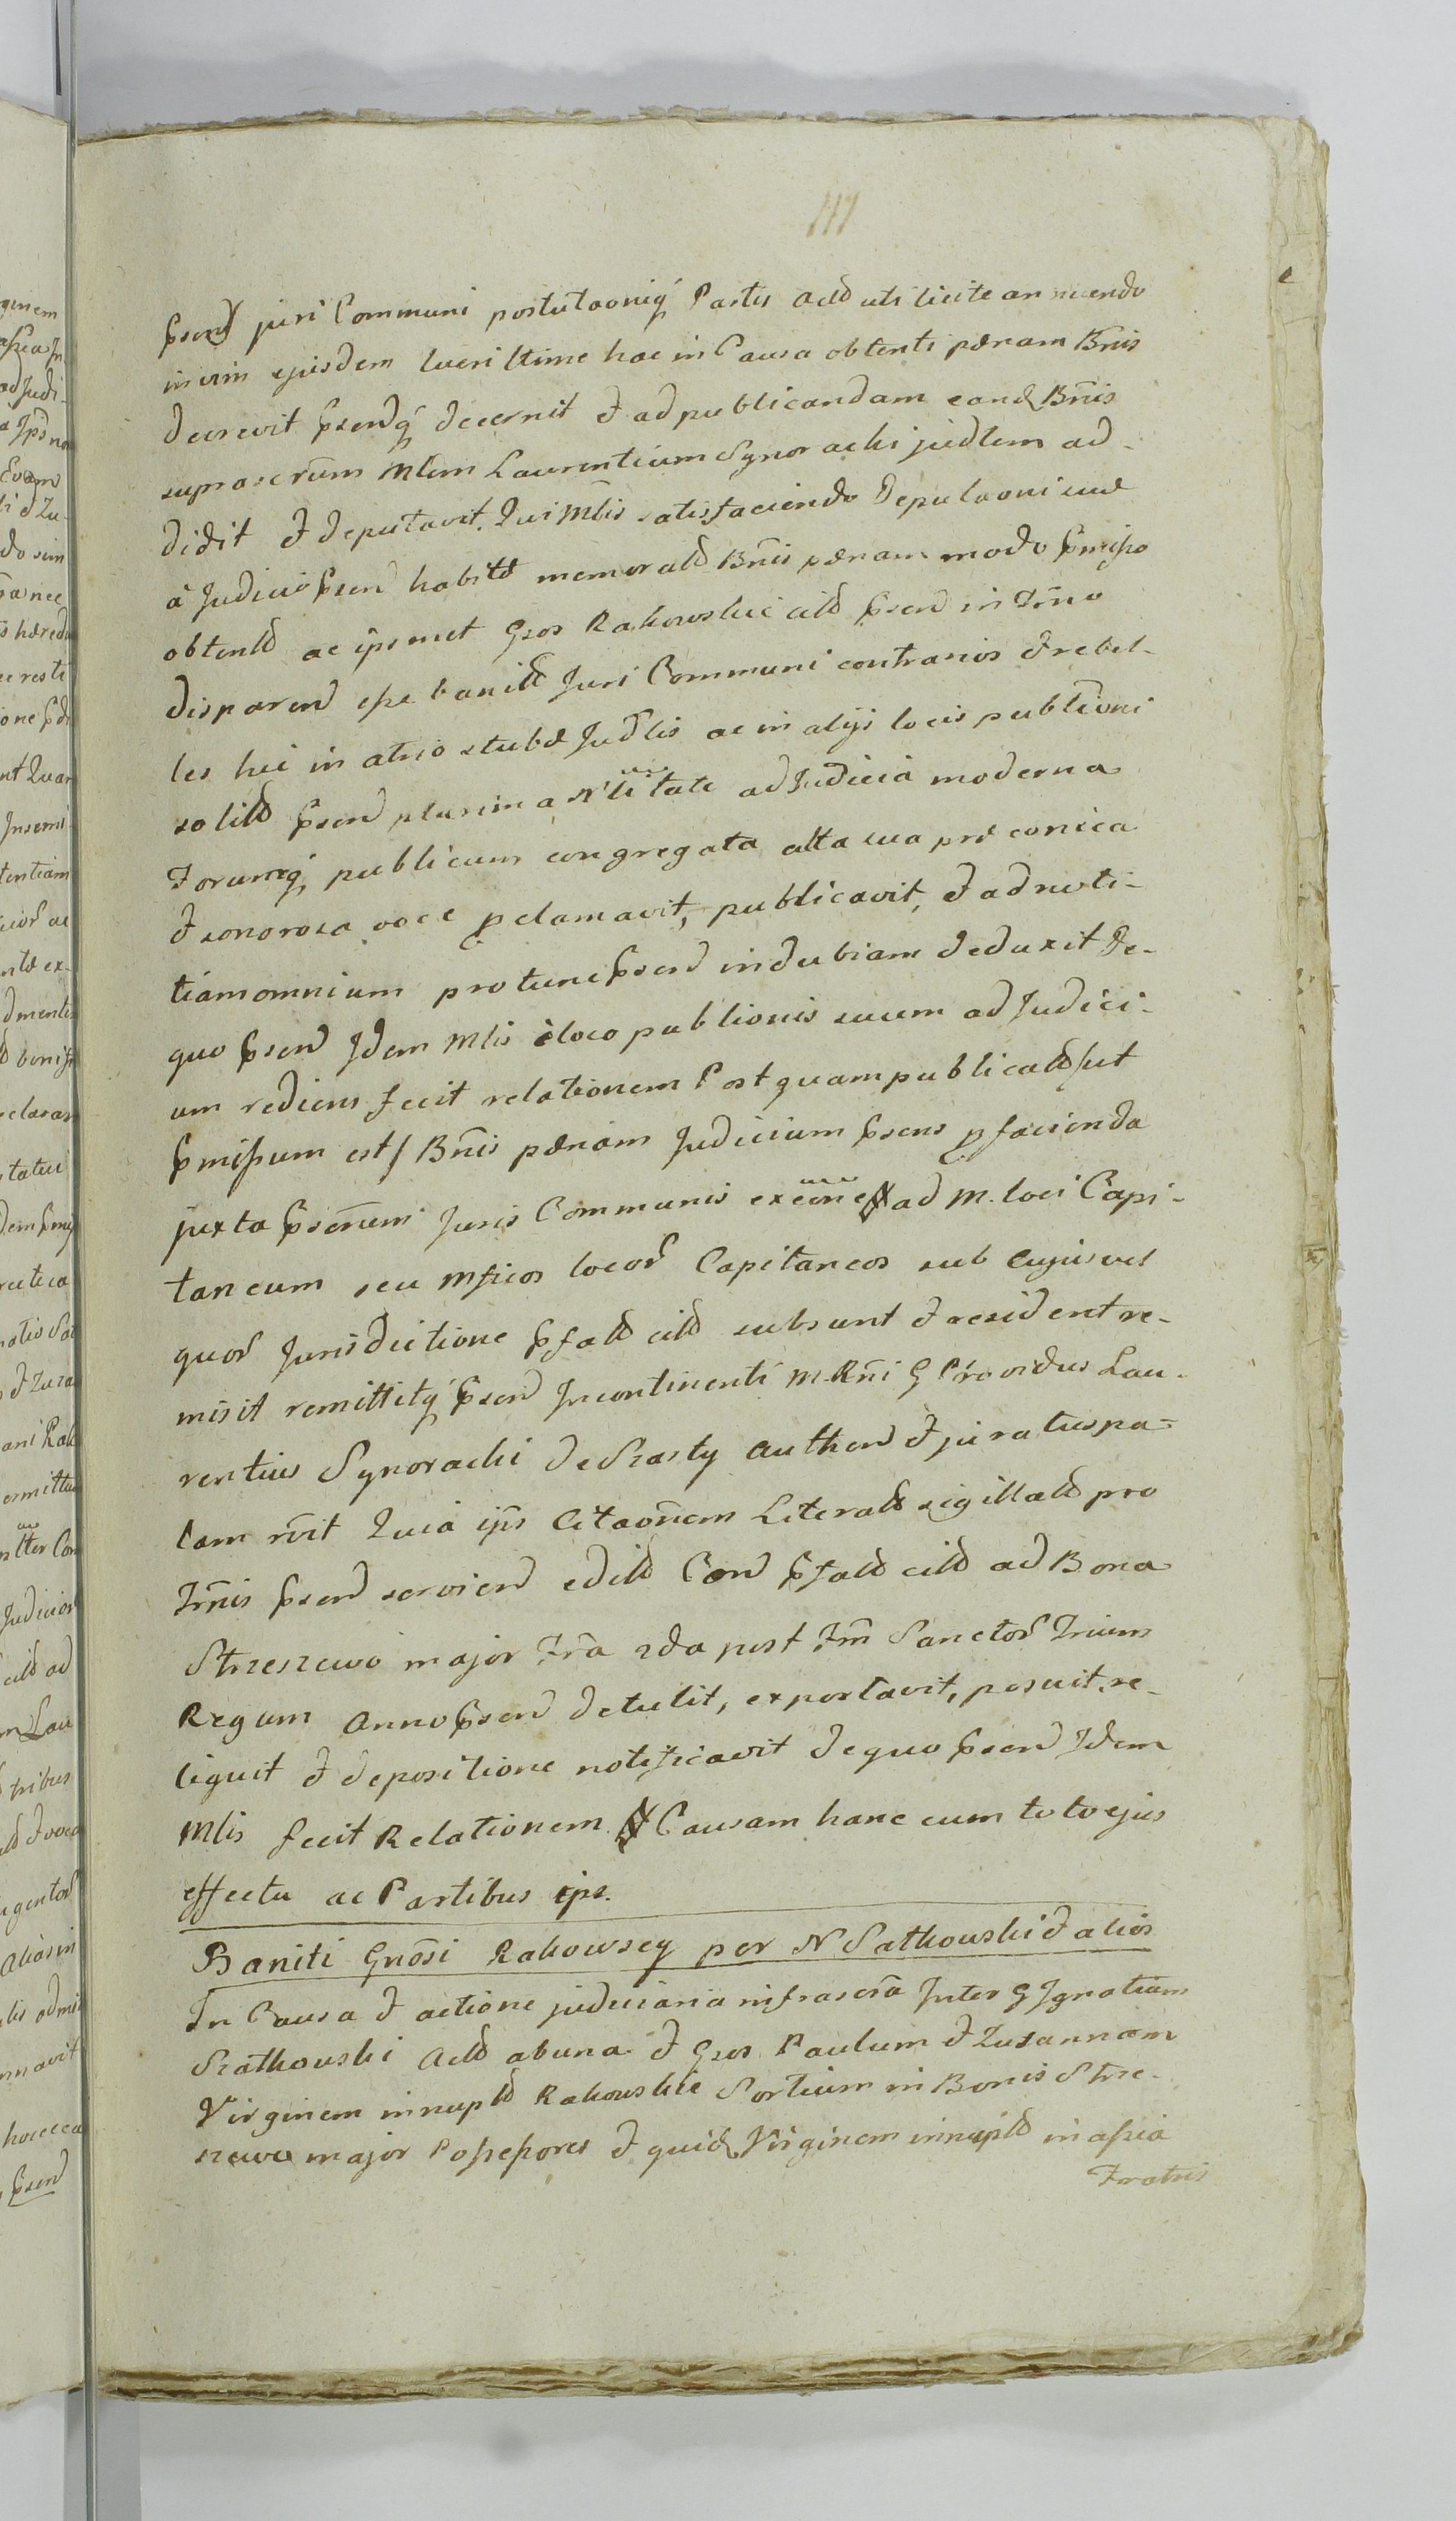 117
psend juri Communi postulaoniq Partis actd uti licite annuendo
in vim ejusdem lucri ltime hac in Causa obtenti pænam Bnis
decrevit psendq decernit & ad publicandam eand Bnis
suprascrum Mlem Laurentium Synoracki judlem ad-
didit & deputavit. Qui Mlis satisfaciendo deputaoni suæ
à Judicio psend habitæ memoratd Bnis pænam modo pmisso
obtentd ac ipsmet Gsos Rakowskie citd psend in Trno
disparend esse banitd Juri Communi contrarios & rebel-
les hic in atrio stubæ Judlis ac in alijs locis publioni
solitd psend plurima Nlitate ad Judicia moderna
Forumq publicum congregata alta sua præconica
& sonorosa voce pclamavit, publicavit, & ad noti-
tiam omnium pro tunc psend indubiam deduxit de-
quo psend Idem Mlis è loco publionis suum ad Judici-
um rediens fecit relationem Postquam publicatd /ut
pmissum est/ Bnis pænam Judicium psens p facienda
juxta pscrum Juris Communis exeone ad M. loci Capi-
taneum seu Mficos locor Capitaneos sub cujusvis
quor Jurisdictione pfatd citd subsunt & resident re-
misit remittitq psend Incontinenti M. Rni G Providus Lau-
rentius Synoracki de Szasty authend & juratus pa-
lam rvit Quia ipse Citaonem Literatd sigillatd pro
Trnis psend serviend editd Cond pfatd citd ad Bona
Strzeszewo major Fra 2da post Fm Sanctor Trium
Regum Anno psend detulit, exportavit, posuit, re-
liquit & depositione notificavit de quo psend Idem
Mlis fecit Relationem Causam hanc cum toto ejus
effectu ac Partibus ips.
Baniti Gnosi Rakowscy per N Satkowski & alios
In Causa & actione judiciaria infrascra Inter G Ignatium
Szatkowski Actd ab una & Gsos Paulum & Zuzannam
Virginem innuptd Rakowskie Sortium in Bonis Strze-
szewo major Possessores & quid Virginem innuptd in assia
Fratris